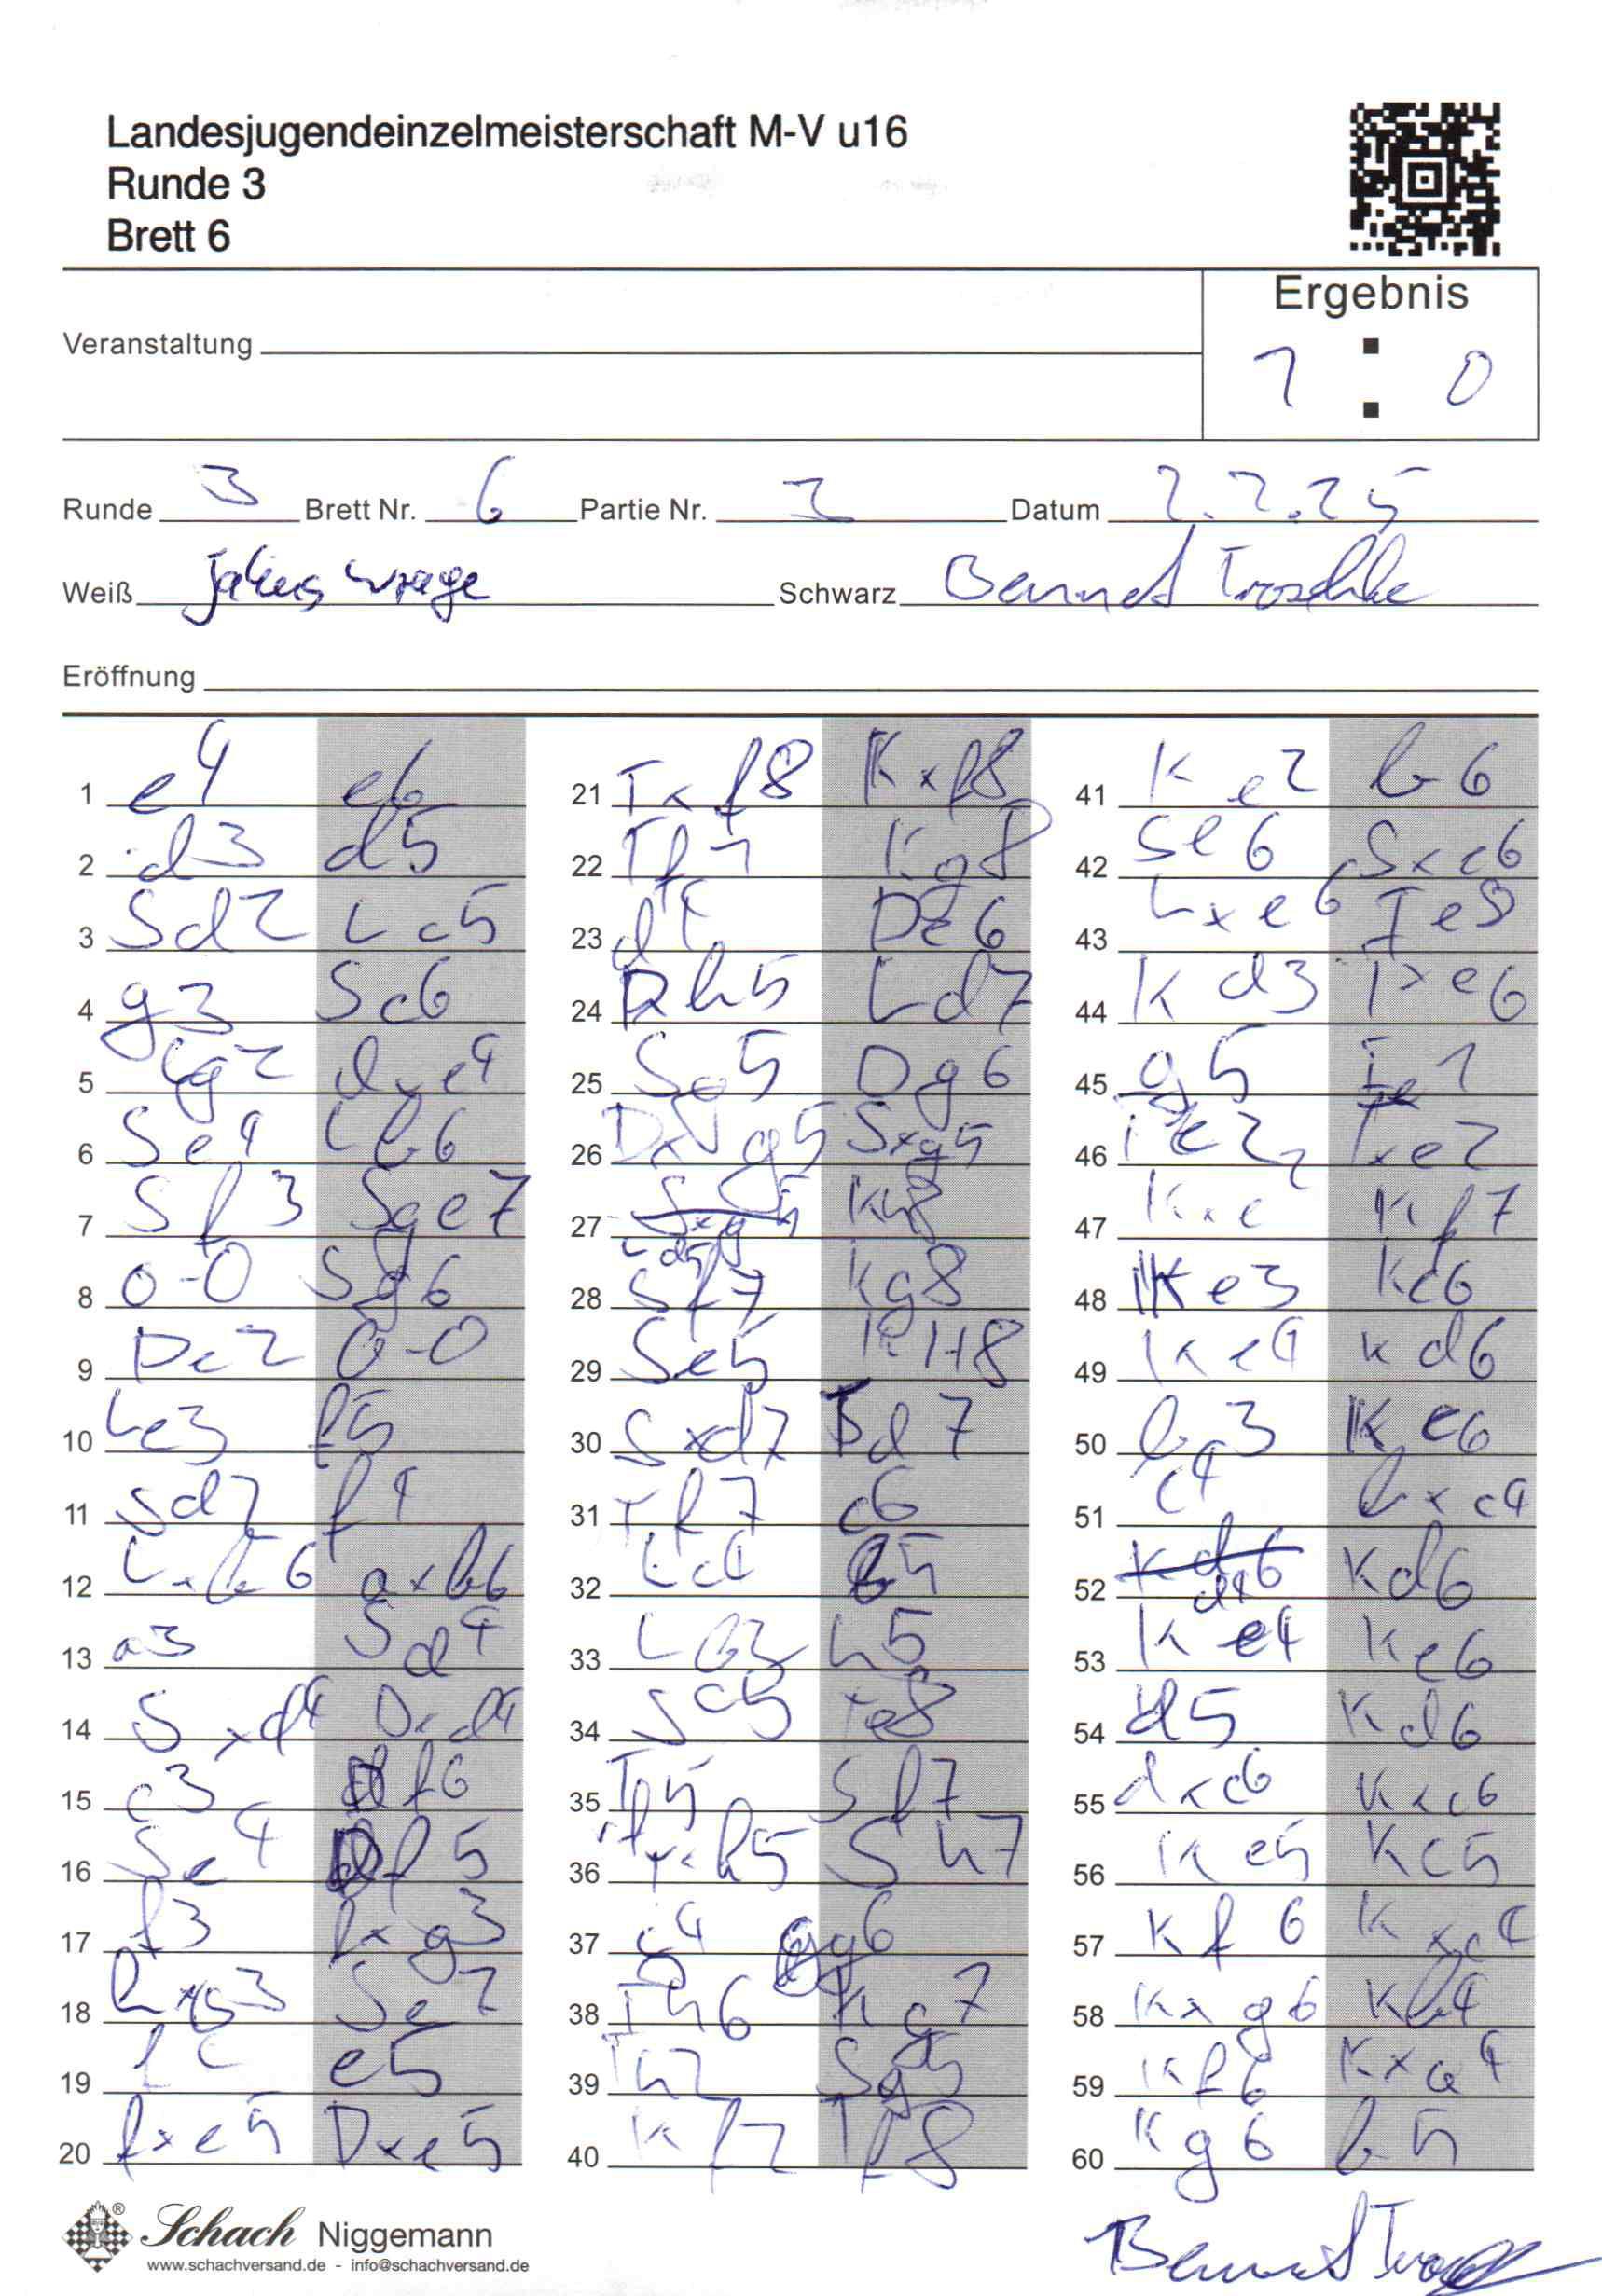 Landesjugendeinzelmeisterschaft M-V u16
Runde 3
Brett 6
Ergebnis
1 : 0
Veranstaltung
Runde 3 Brett Nr. 6 Partie Nr. Datum 2.2.25
Weiß Schwarz Bennet Troschke
Eröffnung
1 e4 e6
2 d3 d5
3 Sd2 Lc5
4 g3 Sc6
5 Lg2 dxe4
6 Se4 Lb6
7 Sf3 Sge7
8 0-0 Sg6
9 De2 0-0
10 Le3 f5
11 Sd2 f4
12 Lxb6 axb6
13 a3 Sd4
14 Sxd4 Dxd4
15 c3 Df6
16 Se4 Df5
17 f3 fxg3
18 hxg3 Se7
19 f4 e5
20 fxe5 Dxe5
21 Txf8 Kxf8
22 Tf1 Kg8
23 d4 De6
24 Dh5 Ld7
25 Sg5 Dg6
26 Dxg5 Sxg5
27 Ld5 Kh8
28 Sf7 Kg8
29 Se5 KH8
30 Sxd7 Td7
31 Tf7 c6
32 Lc4 b5
33 La2 h5
34 Sc5 Te8
35 Tf5 Sf7
36 Txh5 Sh7
37 g4 g6
38 Th6 Kg7
39 Th2 Sg5
40 Kf2 Tf8
41 Ke2 b6
42 Se6 Sxe6
43 Lxe6 Te8
44 Kd3 Txe6
45 g5 Te1
46 Te2 Txe2
47 Kxe Kf7
48 Ke3 Ke6
49 Ke4 Kd6
50 b3 Ke6
51 c4 bxc4
52 d4 Kd6
53 Ke4 Ke6
54 d5 Kd6
55 dxc6 Kxc6
56 Ke5 Kc5
57 Kf6 Kxc4
58 Kxg6 Kb4
59 Kf6 Kxa4
60 Kg6 b5
Schach Niggemann
www.schachversand.de - info@schachversand.de